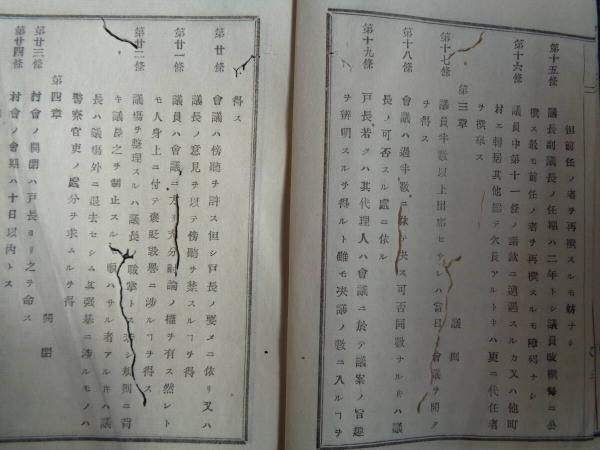 但前任ノ者ヲ再撰スルモ妨ナシ
第十五條 議長副議長ノ任期ハ二年トシ議員改撰每ニ公
撰ス最モ前任ノ者ヲ再撰スルモ障碍ナシ
第十六條 議員中第十一條ノ諸款ニ遭遇スルカ又ハ他町
村エ轉居其他總テ欠員アルトキハ更ニ代任者
ヲ撰擧ス
第三章 議則
第十七條 議員半數以上出席セサレハ當日ノ會議ヲ開ク
ヲ得ス
第十八條 會議ハ過半數ニ依テ决ス可否同數ナルドキハ議
長ノ可否スル處ニ依ル
第十九條 戸長若クハ其代理人ハ會議ニ於テ議案ノ旨趣
ヲ辨明スルヲ得ルト雖モ决議ノ數ニ入ルヿヲ
得ス
第廿條 會議ハ傍聽ヲ許ス但シ戸長ノ要メニ依リ又ハ
議長ノ意見ヲ以テ傍聽ヲ禁スルヿヲ得
第廿一條 議員ハ會議ニ方リ充分討論ノ權ヲ有ス然レト
モ人身上ニ付テ褒貶毀譽ニ涉ルヿヲ得ス
第廿二條 議塲ヲ整理スルハ議長ノ職掌トス若シ規則ニ背
キ議長之ヲ制止スルモ順ハサル者アルドキハ議
長ハ議塲外ニ退去セシム其强暴ニ涉ルモノハ
警察官吏ノ處分ヲ求ムルヿヲ得
第四章 開閉
第廿三條 村會ノ開閉ハ戸長ヨリ之ヲ命ス
第廿四條 村會ノ會期ハ十日以內トス